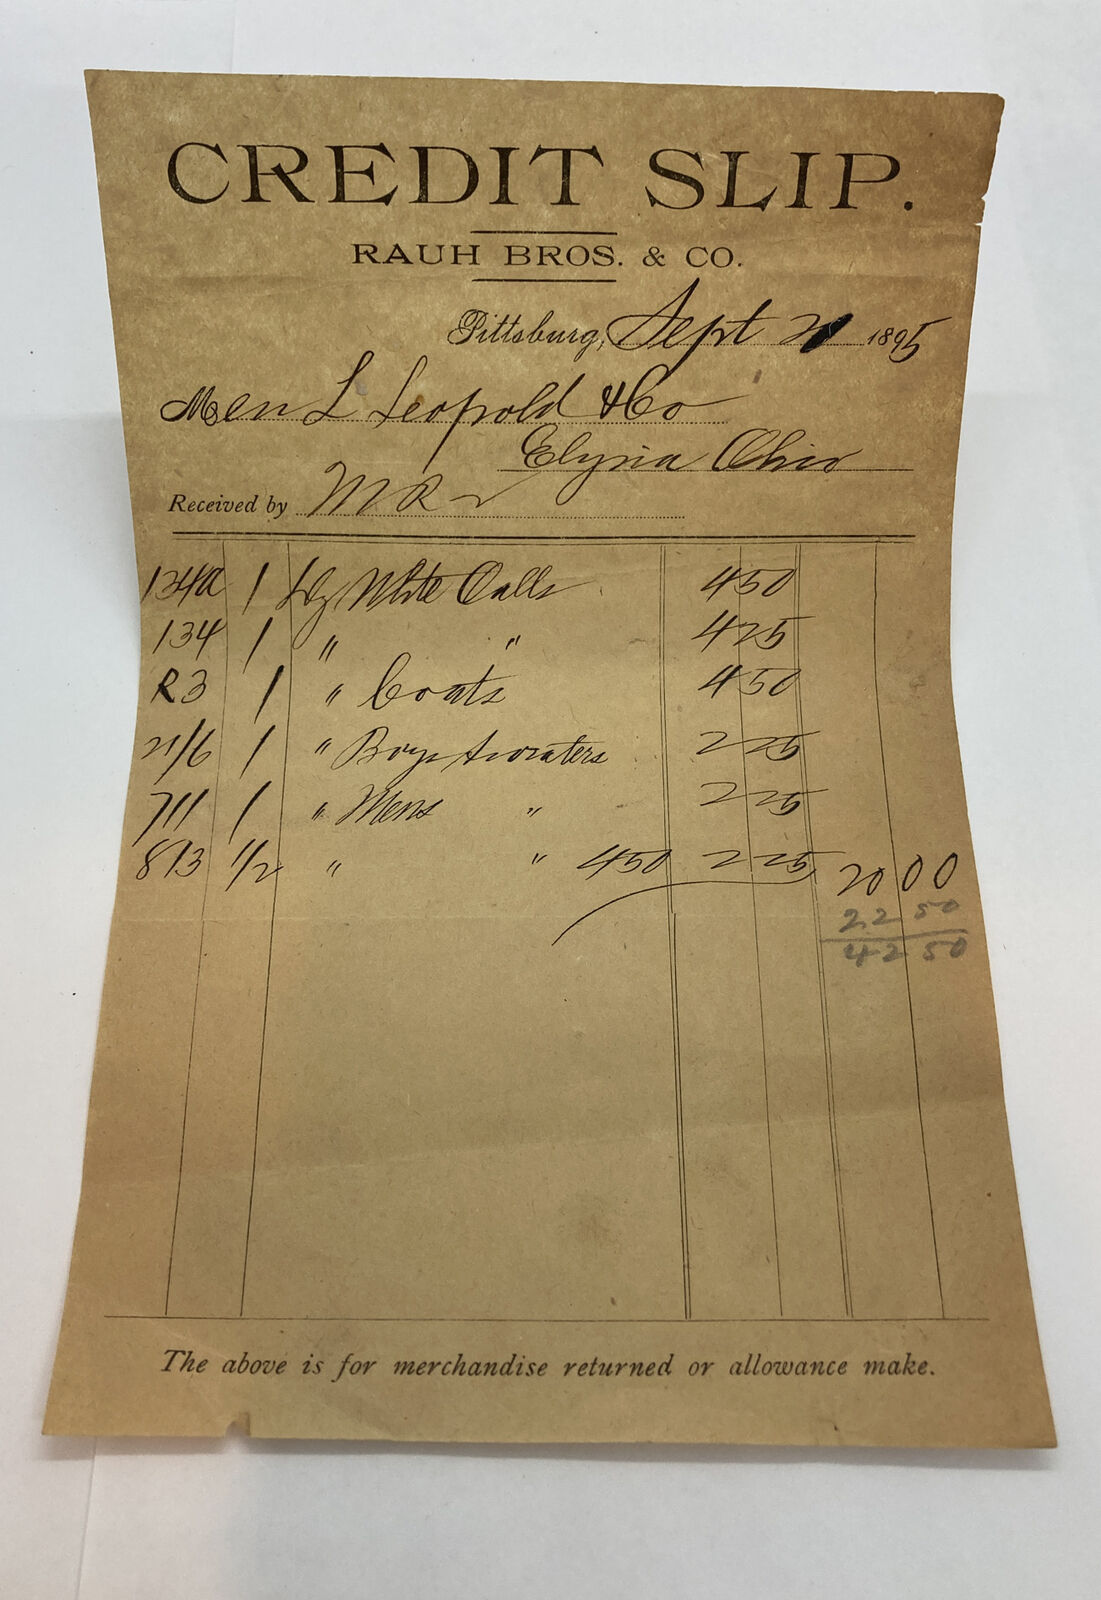 CREDIT SLIP.
RAUH BROS. & CO.
Pittsburg, Sept 1895
L Leopold & Co
Elyria Ohio
Received by M R
134a 1 Dz White Oalls 450
134 1 " " 425
R3 1 " Coats 450
21/6 1 " Boys Sweaters 225
711 1 " Mens " 225
813 1/2 " " 450 225 2000
2250
4250
The above is for merchandise returned or allowance make.